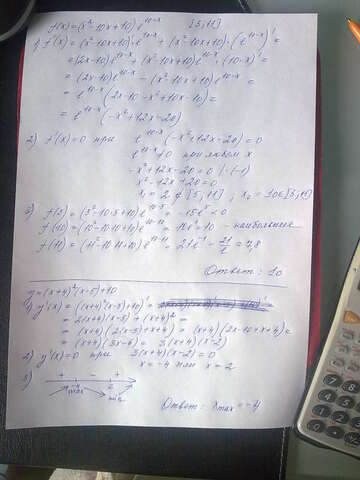 f(x)=(x²-10x+10)e^(10-x) [5;11]
1) f'(x) = (x²-10x+10)'·e^(10-x) + (x²-10x+10)·(e^(10-x))' =
= (2x-10)e^(10-x) + (x²-10x+10)e^(10-x)·(10-x)' =
= (2x-10)e^(10-x) - (x²-10x+10)e^(10-x) =
= e^(10-x)(2x-10-x²+10x-10) =
= e^(10-x)(-x²+12x-20)
2) f'(x)=0 при e^(10-x)(-x²+12x-20)=0
e^(10-x)≠0 при любом x
-x²+12x-20=0 |·(-1)
x²-12x+20=0
x₁=2 ∉ [5;11], x₂=10∈[5;11]
3) f(5)=(5²-10·5+10)e^(10-5) = -15e⁵<0
f(10)=(10²-10·10+10)e^(10-10)=10e⁰=10 - наибольшее
f(11)=(11²-10·11+10)e^(10-11)=21e⁻¹=21/e=7,8
Ответ: 10
y=(x+4)²(x-5)+10
1) y'(x)=((x+4)²(x-5)+10)'=
= 2(x+4)(x-5)+(x+4)² =
= (x+4)(2(x-5)+x+4) = (x+4)(2x-10+x+4)=
= (x+4)(3x-6) = 3(x+4)(x-2)
2) y'(x)=0 при 3(x+4)(x-2)=0
x=-4 или x=2
3) + - +
-4 2
max min
Ответ: x_max=-4